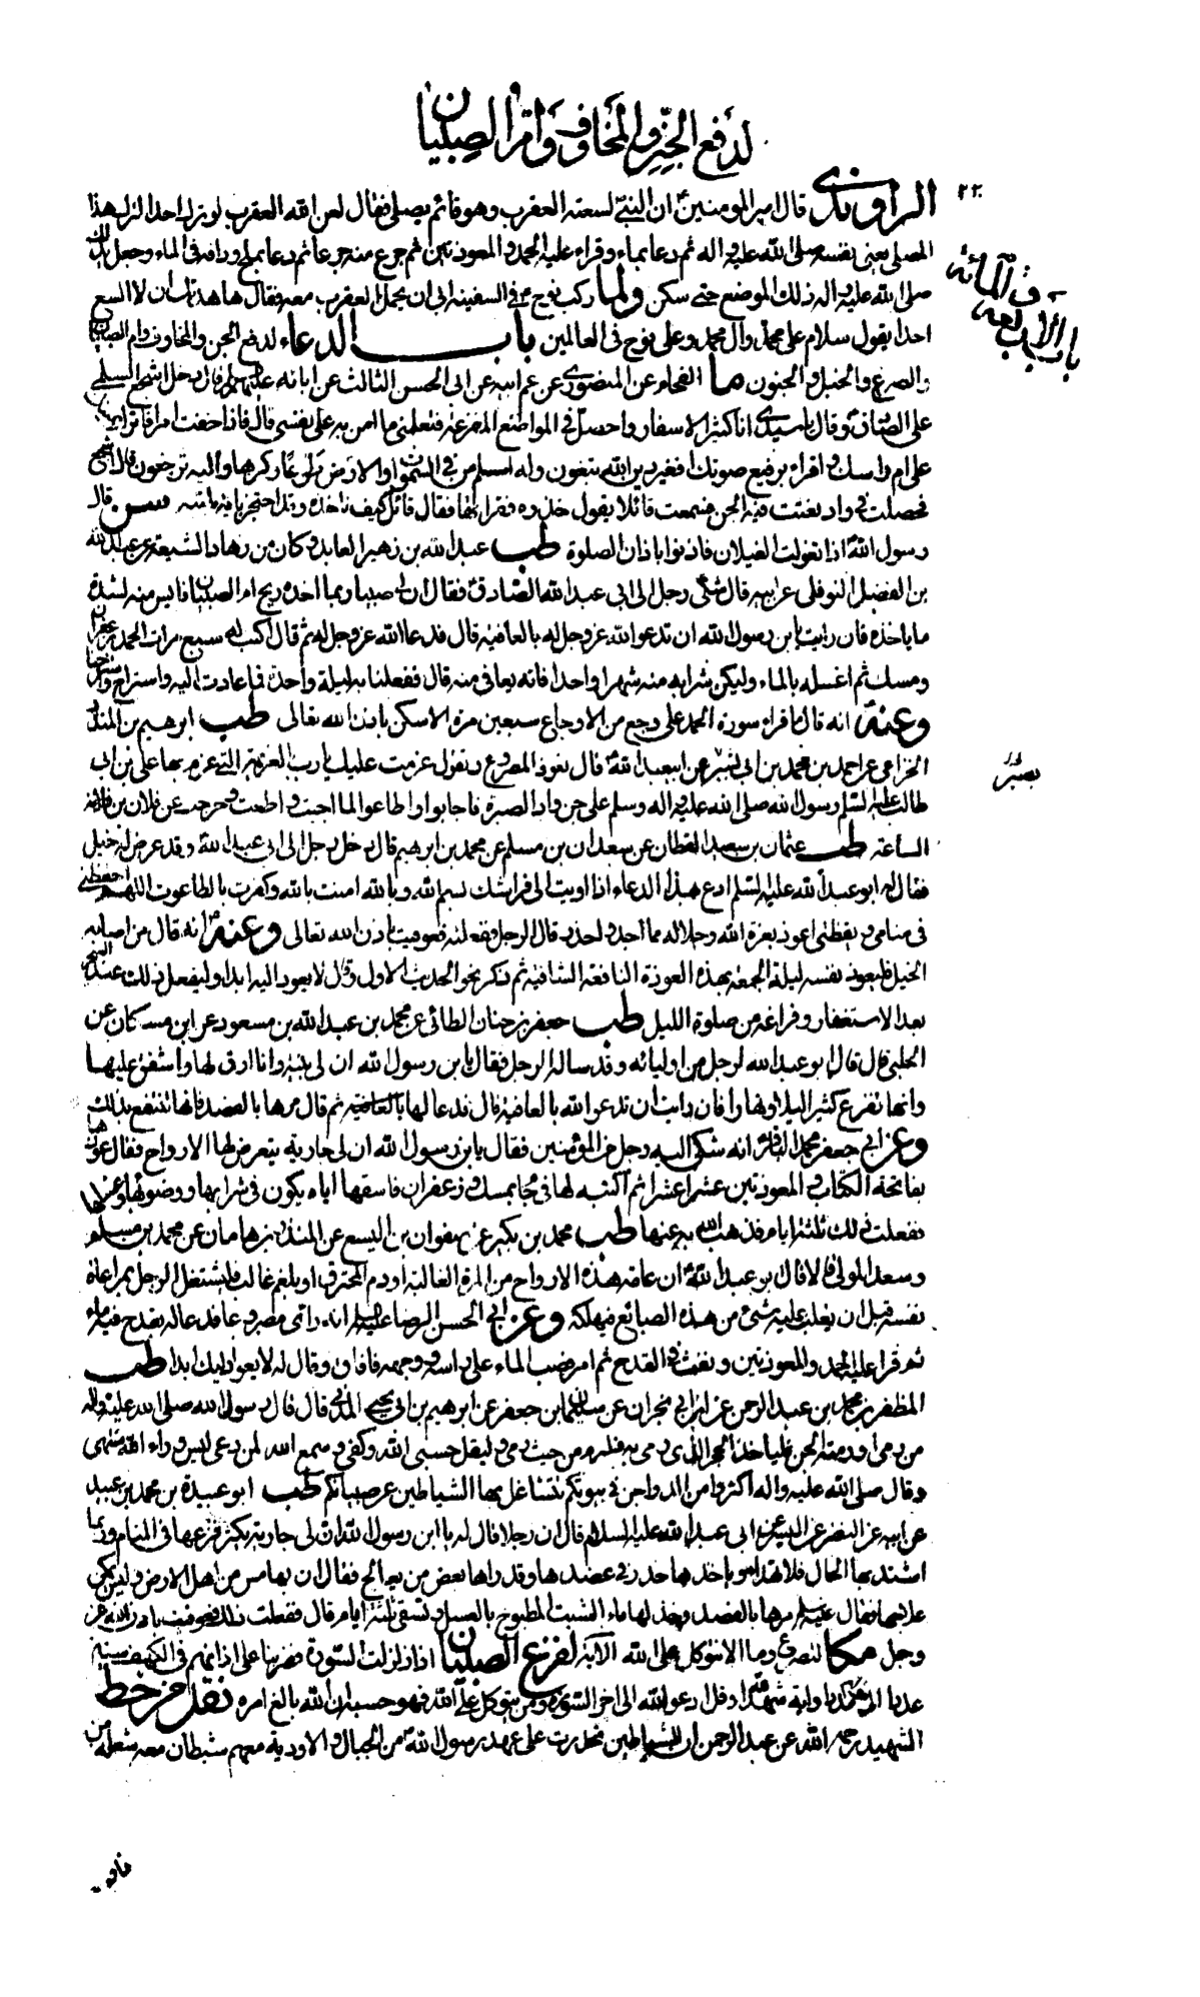 لدفع الجن والمخاوف وام الصبيان
٢٢٠
الراوندي قال امير المؤمنين ان النبي لسعته العقرب وهو قائم يصلي فقال لعن الله العقرب لو ترك احدا لترك هذا
المصلي يعني نفسه صلى الله عليه واله ثم دعا بماء وقراء عليه الحمد والمعوذتين ثم جرع منه جرعا ثم دعا بملح ودافه في الماء وجعل يدلك
صلى الله عليه واله ذلك الموضع حتى سكن ولما ركب نوح ع في السفينة ابى ان يحمل العقرب معه فقال عاهدتك ان لا السع
احدا يقول سلام على محمد وال محمد وعلى نوح في العالمين باب الدعاء لدفع الجن والمخاوف وام الصبيان
باب الرابع والمائة
والصرع والخبل والجنون ما الفحام عن المنصوري عن عم ابيه عن ابى الحسن الثالث عن ابائه عليهم السلم قال دخل اشجع السلمي
على الصادق وقال يا سيدي انا كثير الاسفار واحصل في المواضع المفزعة فتعلمني ما امن به على نفسي قال فاذا خفت امرا فاترك يمينك
على ام راسك واقراء برفيع صوتك افغير دين الله تبغون وله اسلم من في السموات والارض طوعا وكرها واليه ترجعون قال اشجع
فحصلت في واد تعبثت فيه الجن فسمعت قائلا يقول خذوه فقراتها فقال قائل كيف ناخذه وقد احتجز باية طيبة سن قال
رسول الله اذا تغولت الغيلان فاذنوا باذان الصلوة طب عبد الله بن زهير العابد وكان من زهاد الشيعة عن عبد الله
بن الفضل النوفلي عن ابيه قال شكى رجل الى ابى عبد الله الصادق فقال ان لي صبيا ربما اخذه ريح ام الصبيان فايس منه لشدة
ما ياخذه فان رايت يا بن رسول الله ان تدعو الله عز وجل له بالعافية قال فدعا الله عز وجل له ثم قال اكتب له سبع مرات الحمد بزعفران
ومسك ثم اغسله بالماء وليكن شرابه منه شهرا واحدا فانه يعافى منه قال ففعلنا به ليلة واحدة فما عادت اليه واستراح واسترحنا
وعنه انه قال ما قراء سورة الحمد على وجع من الاوجاع سبعين مرة الا سكن باذن الله تعالى طب ابرهيم بن المنذر
الخزاعي عن احمد بن محمد بن ابى بشر عن ابى عبد الله قال تعوذ المصروع وتقول عزمت عليك يا ريح بالعزيمة التي عزم بها على بن ابى
طالب عليه السلم ورسول الله صلى الله عليه واله وسلم على جن وادى الصبرة فاجابوا واطاعوا لما اجبت واطعت وخرجت عن فلان بن فلانة
الساعة طب عثمان بن سعيد القطان عن سعدان بن مسلم عن محمد بن ابرهيم قال دخل رجل الى ابى عبد الله وقد عرض له خبل
فقال له ابو عبد الله عليه السلم ادع بهذا الدعاء اذا اويت الى فراشك بسم الله وبالله امنت بالله وكفرت بالطاغوت اللهم احفظني
في منامي ويقظتي اعوذ بعزة الله وجلاله مما اجد واحذر قال الرجل ففعلته فعوفيت باذن الله تعالى وعنه انه قال من اصابه
الخبل فليعوذ نفسه ليلة الجمعة بهذه العوذة النافعة الشافية ثم ذكر نحو الحديث الاول وقال لا يعود اليه ابدا وليفعل ذلك عند السحر
بعد الاستغفار وفراغه من صلوة الليل طب جعفر بن حنان الطائي عن محمد بن عبد الله بن مسعود عن ابن مسكان عن
الحلبي قال قال ابو عبد الله لرجل من اوليائه وقد ساله الرجل فقال يا بن رسول الله ان لي بنية وانا ارق لها واشفق عليها
وانها تفزع كثيرا ليلا ونهارا فان رايت ان تدعو الله بالعافية قال فدعا لها بالعافية ثم قال مرها بالفصد فانها تنتفع بذلك
وعن ابي جعفر محمد الباقر انه شكى اليه رجل من المؤمنين فقال يا بن رسول الله ان لي جارية يتعرض لها الارواح فقال عوذها
بفاتحة الكتاب والمعوذتين عشرا عشرا ثم اكتبه لها في جام بمسك وزعفران فاسقها اياه يكون في شرابها ووضوئها وغسلها
ففعلت ذلك ثلثة ايام فذهب الله به عنها طب محمد بن بكير عن صفوان بن اليسع عن المنذر بن هامان عن محمد بن مسلم
وسعد المولى قالا قال ابو عبد الله ان عامة هذه الارواح من المرة الغالبة او دم المحترق او بلغم غالب فليشتغل الرجل بمراعاة
نفسه قبل ان يغلب عليه شئ من هذه الطبائع فيهلكه وعن ابي الحسن الرضا عليه السلم انه راى مصروعا فدعا له بقدح فيه ماء
ثم قراء عليه الحمد والمعوذتين ونفث في القدح ثم امر فصب الماء على راسه ووجهه فافاق وقال له لا يعود اليك ابدا طب
المظفر بن محمد بن عبد الرحمن عن ابن ابي نجران عن سليمان بن جعفر عن ابرهيم بن ابى يحيى المدني قال قال رسول الله صلى الله عليه واله
من رمي او رمته الجن فليأخذ الحجر الذي رمي به فليرم من حيث رمي وليقل حسبي الله وكفى وسمع الله لمن دعى ليس وراء الله منتهى
وقال صلى الله عليه واله اكثروا من الدواجن في بيوتكم تتشاغل بها الشياطين عن صبيانكم طب ابو عبيدة بن محمد بن عبيد
عن ابيه عن النضر عن اليسع عن ابى عبد الله عليه السلام قال ان رجلا قال له يا ابن رسول الله ان لي جارية يكثر فزعها في المنام وربما
اشتد بها الحال فلا تهدأ وياخذها خدر في عضدها وقد راها بعض من يعالج فقال ان بها مس من اهل الارض وليس يمكن
علاجها فقال عليه السلم مرها بالفصد وخذ لها ماء الشبت المطبوخ بالعسل وتسقى ثلثة ايام قال ففعلت ذلك فعوفيت باذن الله عز
وجل مكا للصرع وما لنا الا نتوكل على الله الاية لفزع الصبيان اذا زلزلت السورة فضربنا على اذانهم في الكهف سنين
عددا شهد الله قل ادعوا الله الى اخر السورة ومن يتوكل على الله فهو حسبه ان الله بالغ امره نقل من خط
الشهيد رحمه الله عن عبد الرحمن ان الشياطين تحدرت على عهد رسول الله ص من الجبال والاودية معهم شيطان معه شعلة من